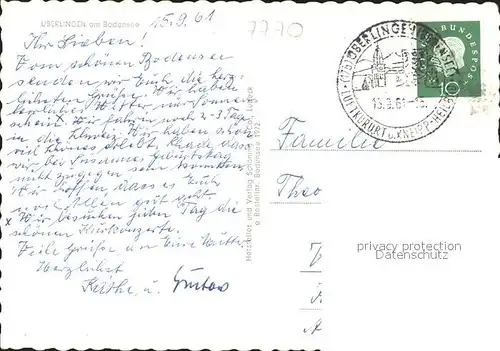 ÜBERLINGEN am Bodensee
15.9.61
7770
Ihr Lieben!
Vom schönen Bodensee
senden wir Euch die herz-
lichsten Grüße. Wir haben
herrliches Wetter nur Sonnen-
schein. Wir fahren noch 2-3 Tage
in die Schweiz. Wir haben schon
viel schönes erlebt. Schade dass
wir bei Susannes Geburtstag
nicht zugegen sein konnten.
Wir hoffen, dass es Euch
allen gut geht.
Wir besuchen jeden Tag die
schönen Kurkonzerte.
Viele Grüße, an Eure Mutter
Herzlichst
Käthe u. Gustav
Hersteller und Verlag Schöning & Co., Lübeck
Bestellnr. Bodensee 1972
ÜBERLINGEN
13.9.61
LUFTKURORT U. KNEIPP-HEILBAD
DEUTSCHE BUNDESPOST
10
Familie
Theo
privacy protection
Copyright